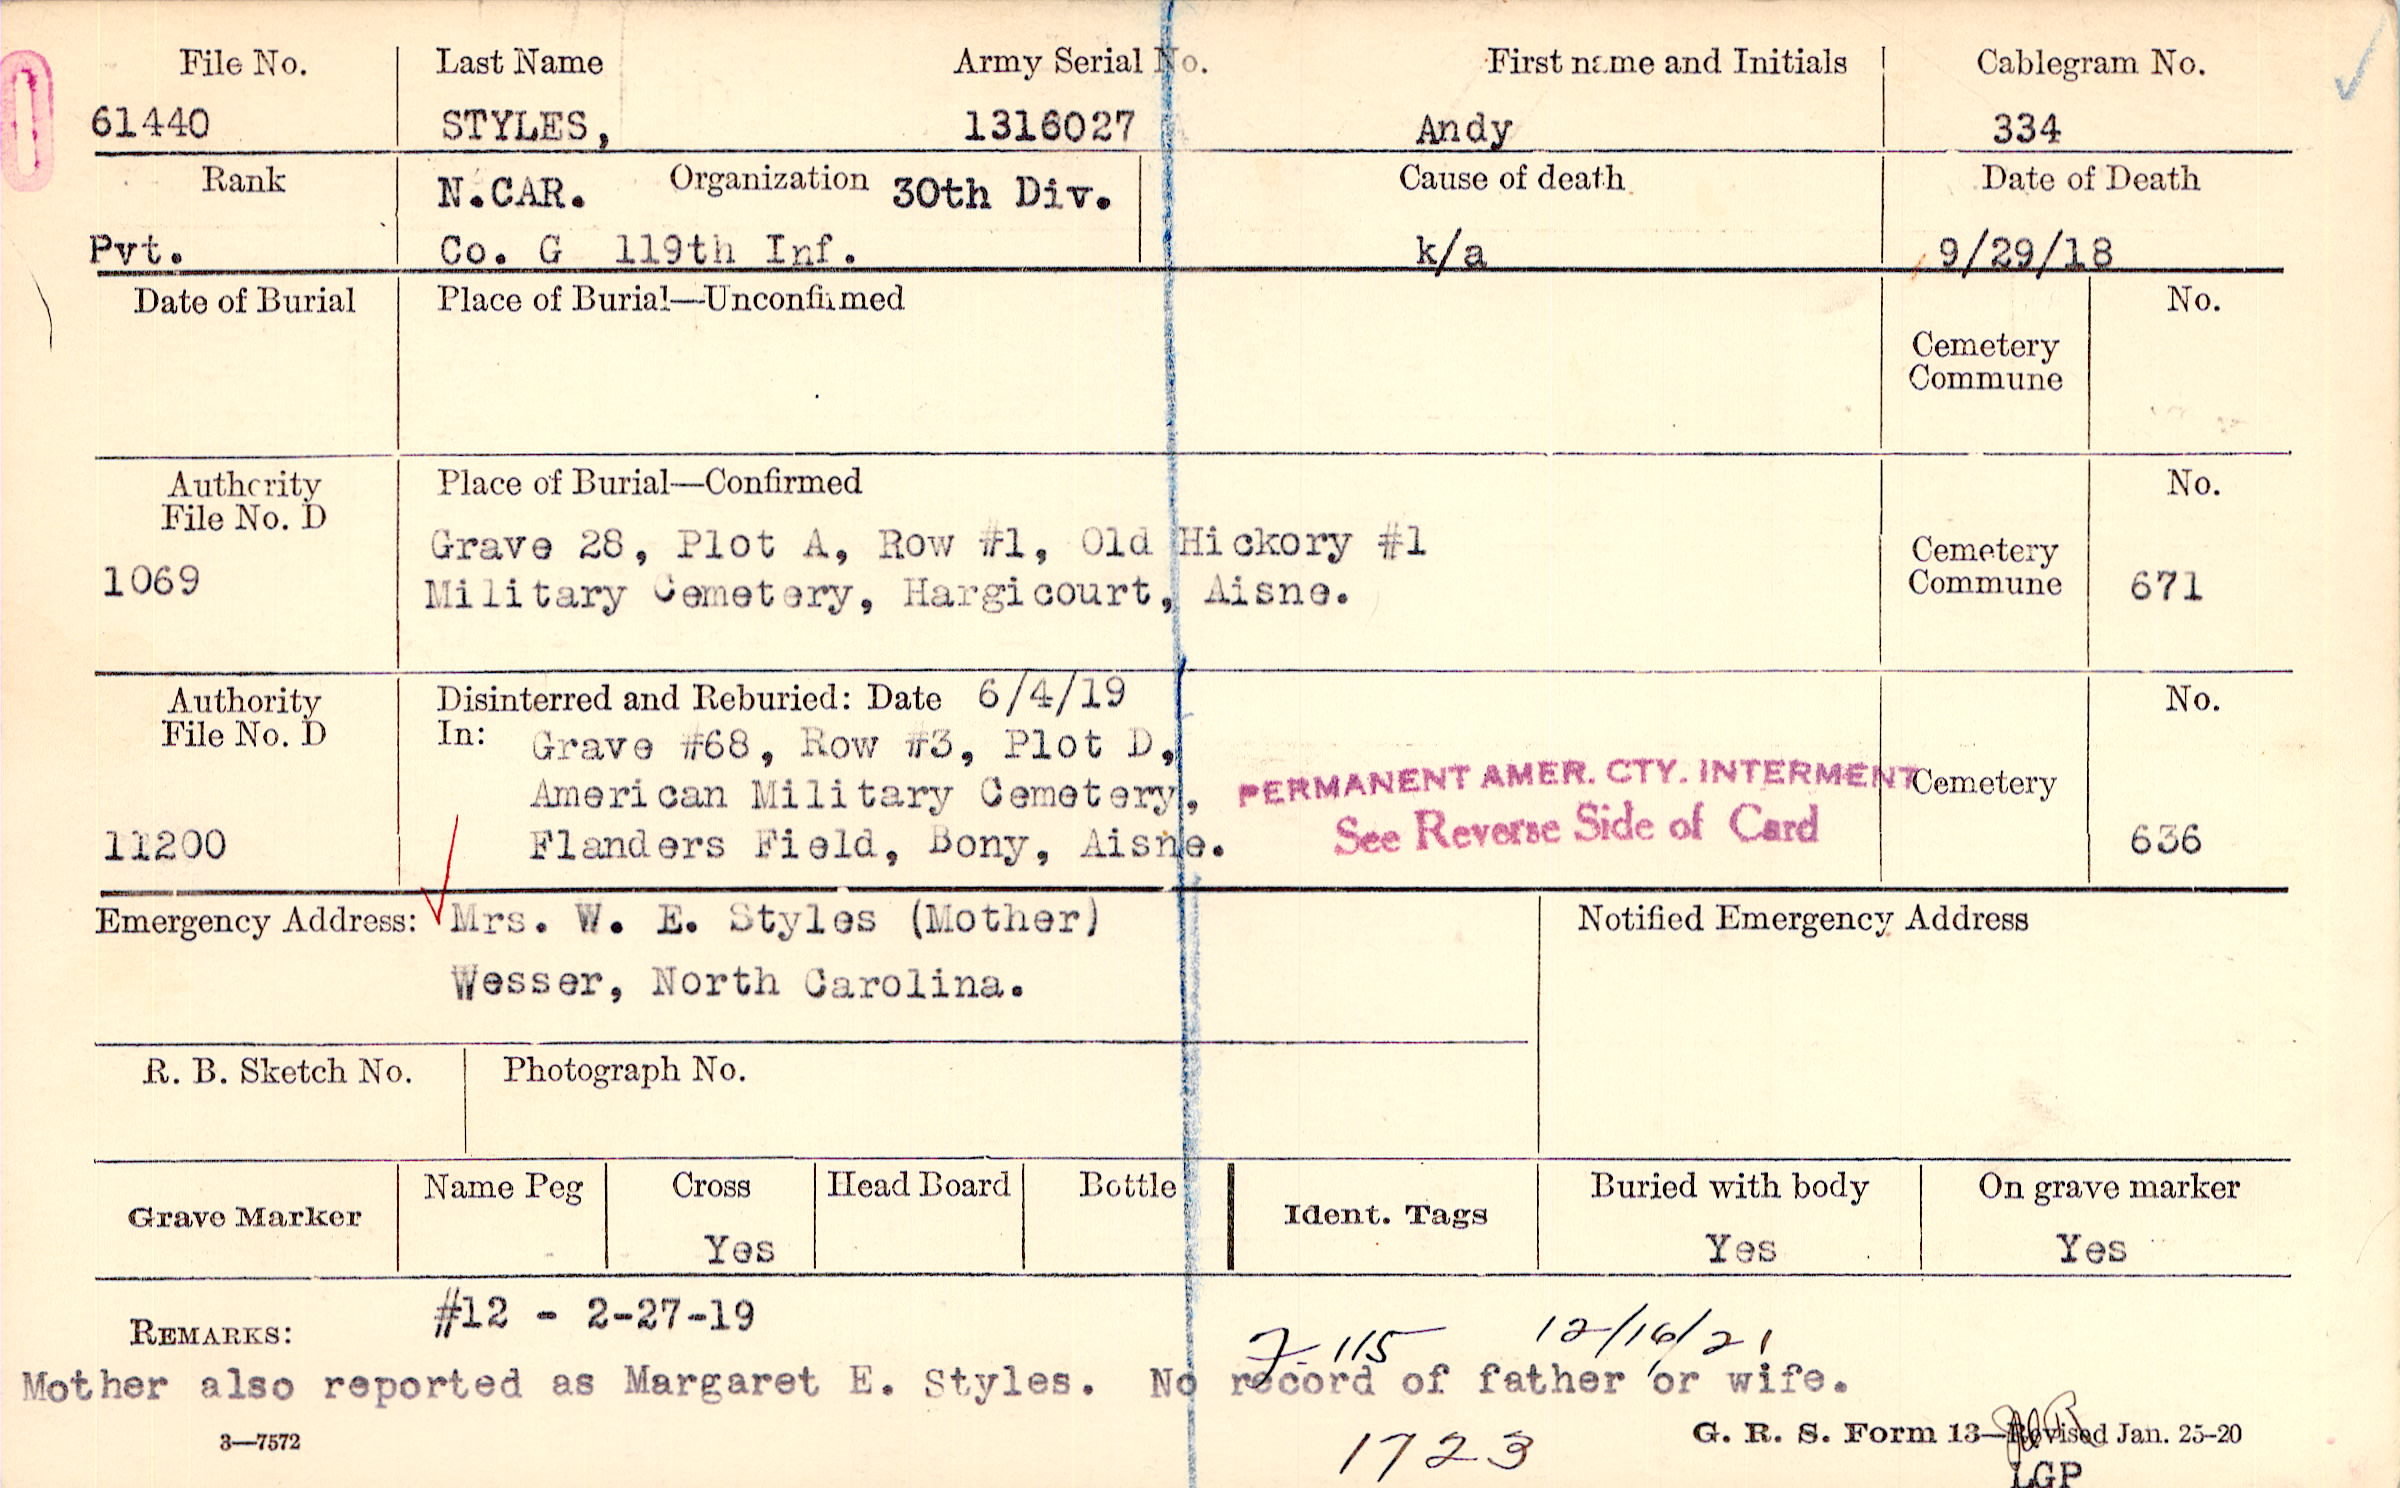 File No. Last Name Army Serial No. First name and Initials Cablegram No.
61440 STYLES, 1316027 Andy 334
Rank N.CAR. Organization 30th Div. Cause of death Date of Death
Pvt. Co. G 119th Inf. k/a 9/29/18
Date of Burial Place of Burial—Unconfirmed No.
Cemetery
Commune
Authority Place of Burial—Confirmed No.
File No. D
Grave 28, Plot A, Row #1, Old Hickory #1 Cemetery
1069 Military Cemetery, Hargicourt, Aisne. Commune 671
Authority Disinterred and Reburied: Date 6/4/19 No.
File No. D In: Grave #68, Row #3, Plot D,
American Military Cemetery, PERMANENT AMER. CTY. INTERMENT Cemetery
11200 Flanders Field, Bony, Aisne. See Reverse Side of Card 636
Emergency Address: Mrs. W. E. Styles (Mother) Notified Emergency Address
Wesser, North Carolina.
R. B. Sketch No. Photograph No.
Grave Marker Name Peg Cross Head Board Bottle Ident. Tags Buried with body On grave marker
Yes Yes Yes
REMARKS: #12 - 2-27-19
115 12/16/21
Mother also reported as Margaret E. Styles. No record of father or wife.
3—7572 1723 G. R. S. Form 13—Revised Jan. 25-20
LGP